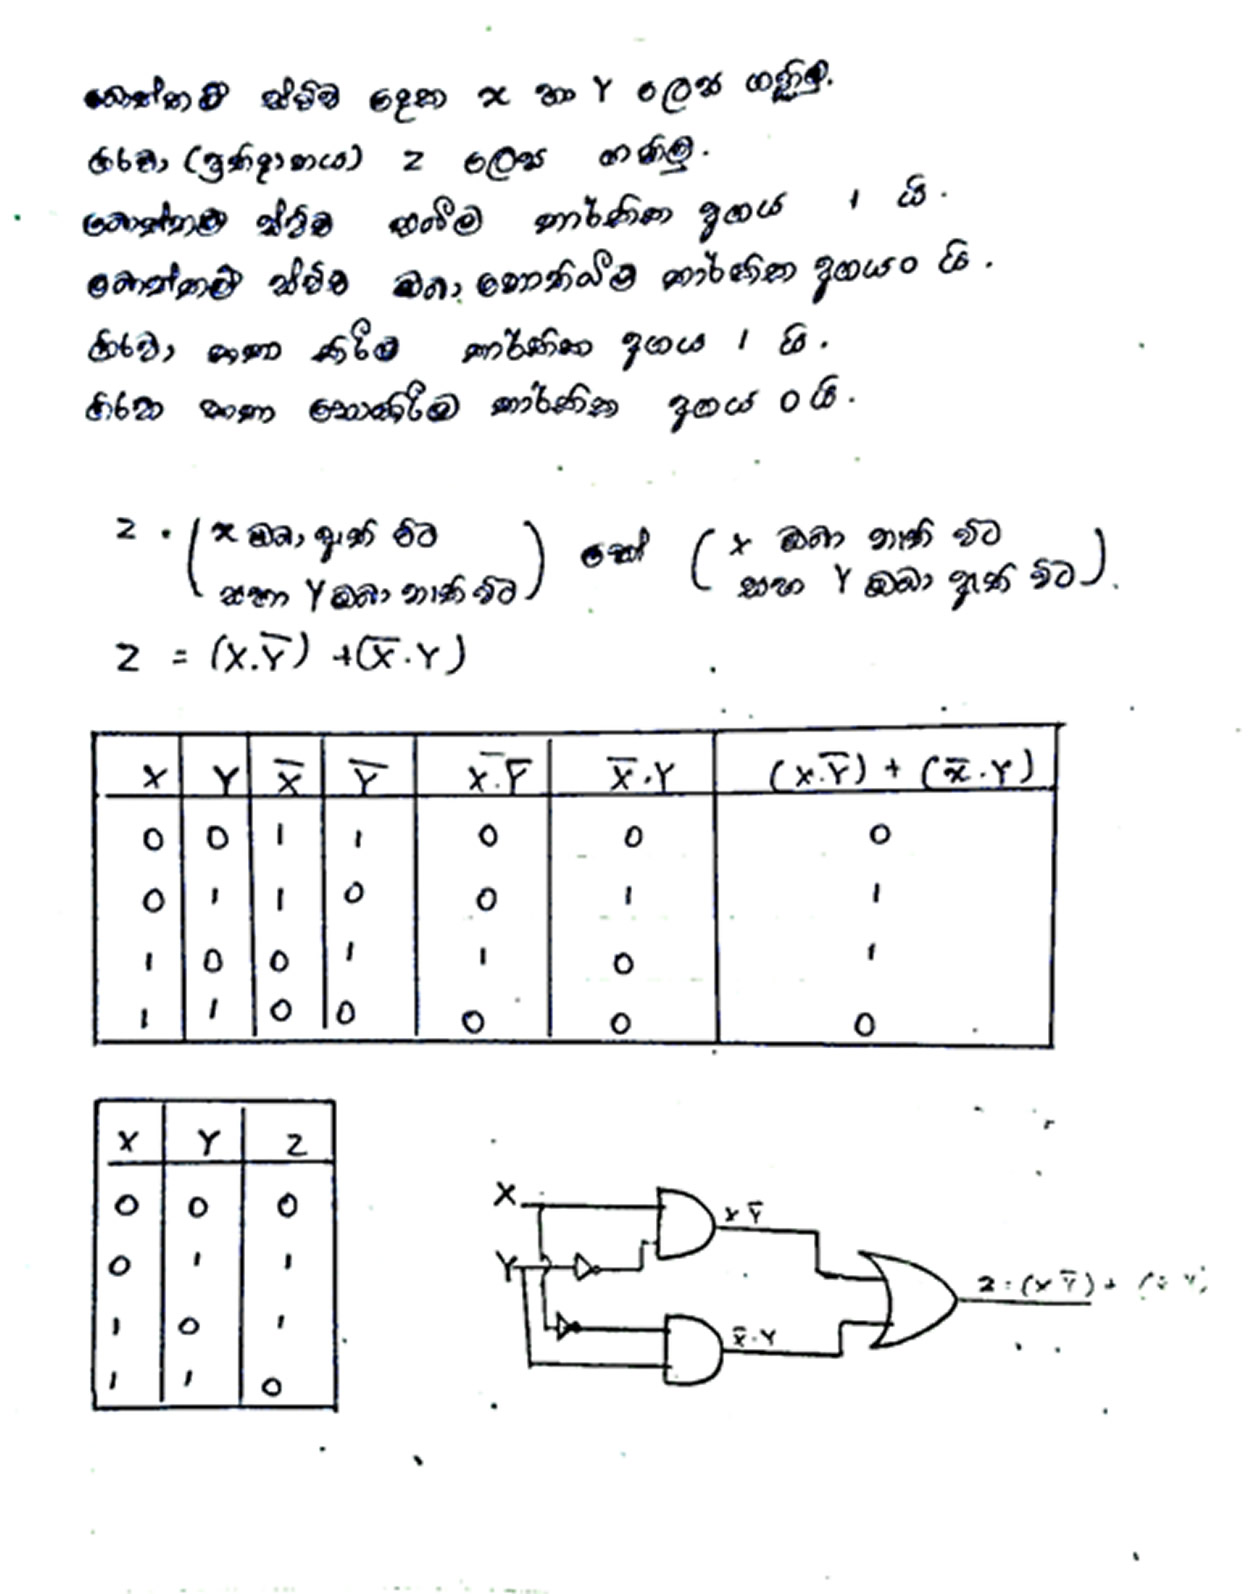 බොත්තම් ස්විච දෙක x හා Y ලෙස ගණිමු.
(ප්‍රතිදානය) Z ලෙස ගණිමු.
බොත්තම් ස්විච එබීම තාර්කික අගය 1 යි.
බොත්තම් ස්විච ඔබා නොතිබීම තාර්කික අගය 0 යි.
හඬා කිරීම තාර්කික අගය 1 යි.
නොකිරීම තාර්කික අගය 0 යි.
Z = (x ඔබා ඇති විට සහ Y ඔබා නැති විට) හෝ (x ඔබා නැති විට සහ Y ඔබා ඇති විට).
Z = (X.Y̅) + (X̅.Y)
X Y X̅ Y̅ X.Y̅ X̅.Y (X.Y̅) + (X̅.Y)
0 0 1 1 0 0 0
0 1 1 0 0 1 1
1 0 0 1 1 0 1
1 1 0 0 0 0 0
X Y Z
0 0 0
0 1 1
1 0 1
1 1 0
X
X Y̅
Y
Z = (X Y̅) + (X̅ Y)
X̅.Y